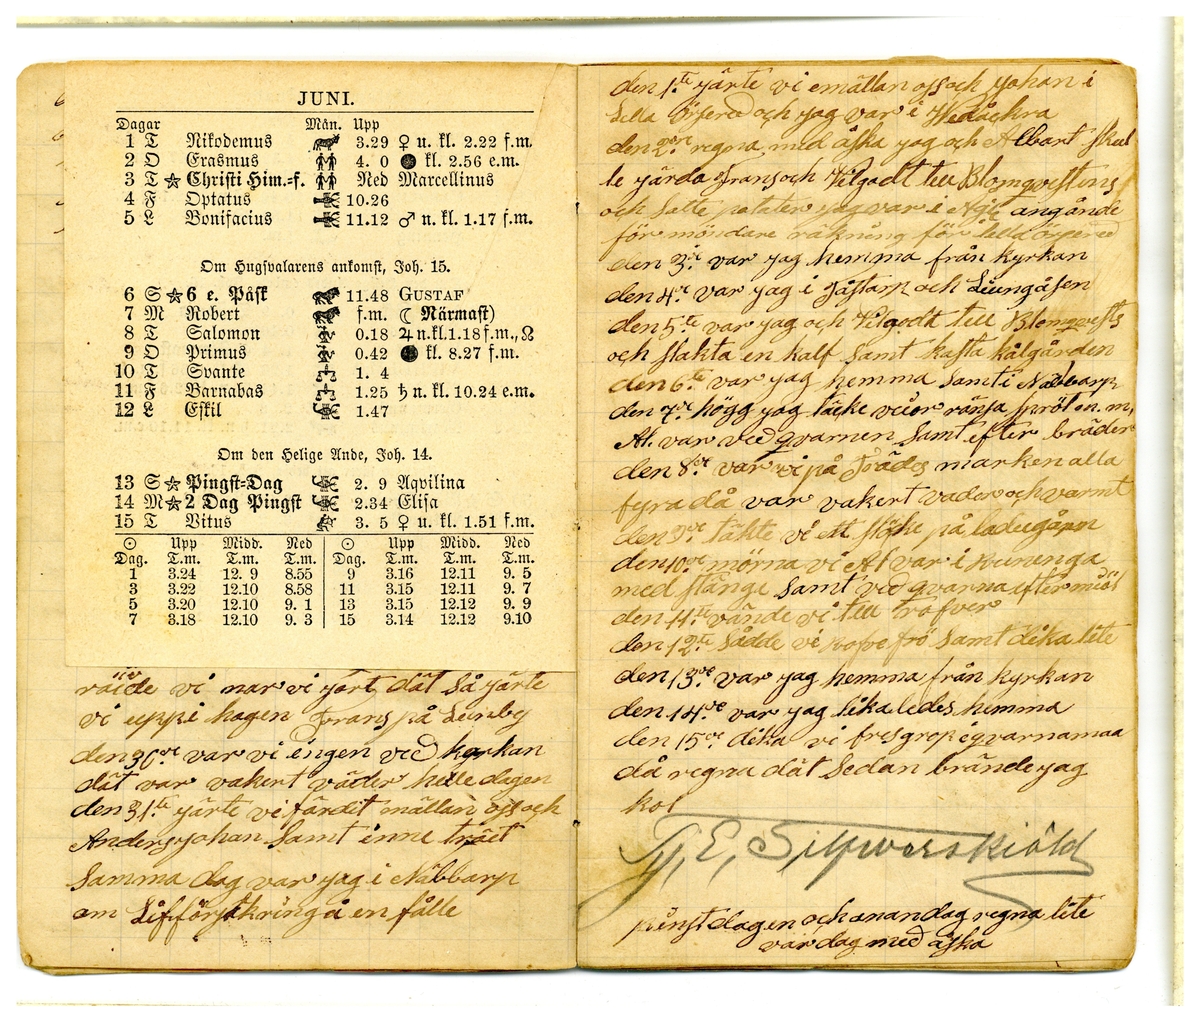 JUNI.
Dagar Mån. Upp
1 T Nikodemus 3.29 ♀ n. kl. 2.22 f.m.
2 O Erasmus 4. 0 ● kl. 2.56 e.m.
3 T ☆ Christi Him.=f. Ned Marcellinus
4 F Optatus 10.26
5 L Bonifacius 11.12 ♂ n. kl. 1.17 f.m.
Om Hugsvalarens ankomst, Joh. 15.
6 S ☆ 6 e. Påsk 11.48 GUSTAF
7 M Robert f.m. ☾ Närmast)
8 T Salomon 0.18 ♃ n.kl.1.18 f.m., ☊
9 O Primus 0.42 ● kl. 8.27 f.m.
10 T Svante 1. 4
11 F Barnabas 1.25 ♄ n. kl. 10.24 e.m.
12 L Eskil 1.47
Om den Helige Ande, Joh. 14.
13 S ☆ Pingst=Dag 2. 9 Aqvilina
14 M ☆ 2 Dag Pingst 2.34 Elisa
15 T Vitus 3. 5 ♀ u. kl. 1.51 f.m.
☉ Upp Midd. Ned ☉ Upp Midd. Ned
Dag. T.m. T.m. T.m. Dag. T.m. T.m. T.m.
1 3.24 12. 9 8.55 9 3.16 12.11 9. 5
3 3.22 12.10 8.58 11 3.15 12.11 9. 7
5 3.20 12.10 9. 1 13 3.15 12.12 9. 9
7 3.18 12.10 9. 3 15 3.14 12.12 9.10
vi nar vi gärt dät så gärte
vi uppi hagen Frans på Lunby
den 30de var vi ingen ved kyrkan
dät var vakert väder hele dagen
den 31.te gärte vi färdit mällan oss och
Anders johan samt inne träet
samma dag var jag i Näbbarp
om en fålle
den 1.te gärte vi emällan oss och Johan i
Lella och jag var i Hedåkra
den 2dre regna med åska jag och Albart skul
le gärda Frans och Hilgodt till Blomqvistens
och satte potater jag var i angånde
för möndare räkning för lella
den 3.i var jag hemma från kyrkan
den 4.e var jag i Jästarp och Liungåsen
den 5.te var jag och Hilgodt till Blomqvists
och slakta en kalf samt kasta kålgården
den 6.te var jag hemma samt i Näbbarp
den 7.de högg jag täcke ränsa spröt m. m,
Al. var ved qvarnen samt efter bräder
den 8.de var vi på Träds marken alla
fyra då var vakert väder och varmt
den 9.de täkte vi ett stöke på ladugårn
den 10.de mörna vi Al var i
med stänge samt ved qvarna efter miöl
den 11.te vände vi till rofver
den 12.te sådde vi rofve frö samt dika lite
den 13.de var jag hemma från kyrkan
den 14.de var jag lika ledes hemma
den 15.de dika vi i qvarnamaa
då regna dät sedan brände jag
kol
E, Silfwerskiöld
pinst dagen och anan dag regna lite
var dag med åska